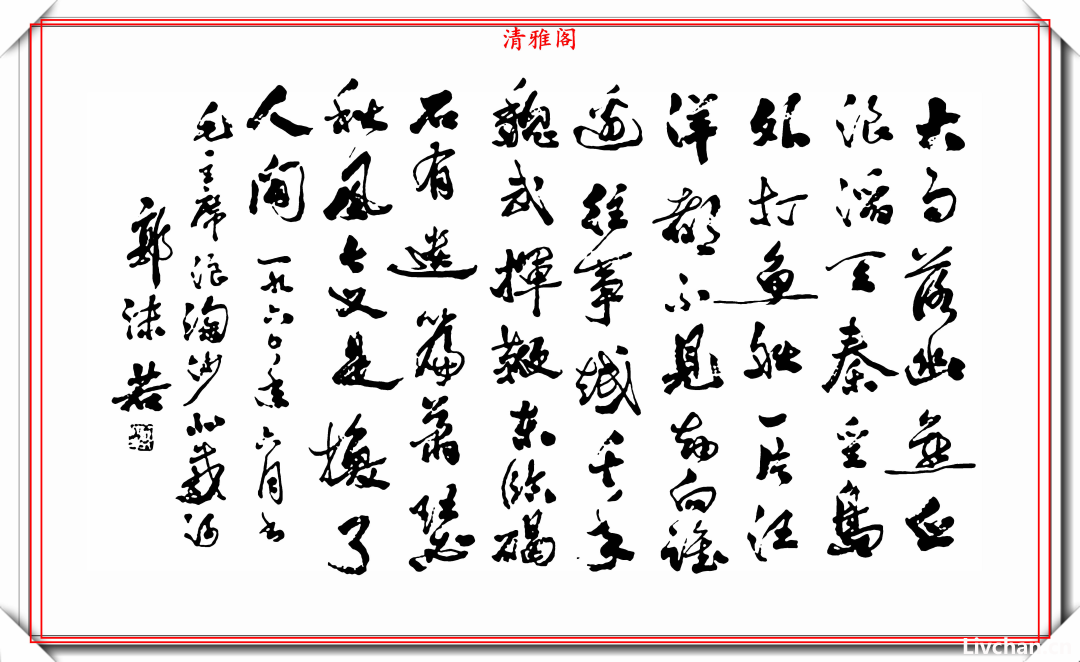 清雅阁
大雨落幽燕白
浪滔天秦皇島
外打鱼船一片汪
洋都不見知向誰
邊往事越千年
魏武揮鞭東臨碣
石有遺篇蕭瑟
秋風今又是換了
人间 一九六〇年六月书
毛主席浪淘沙北戴河
郭沫若